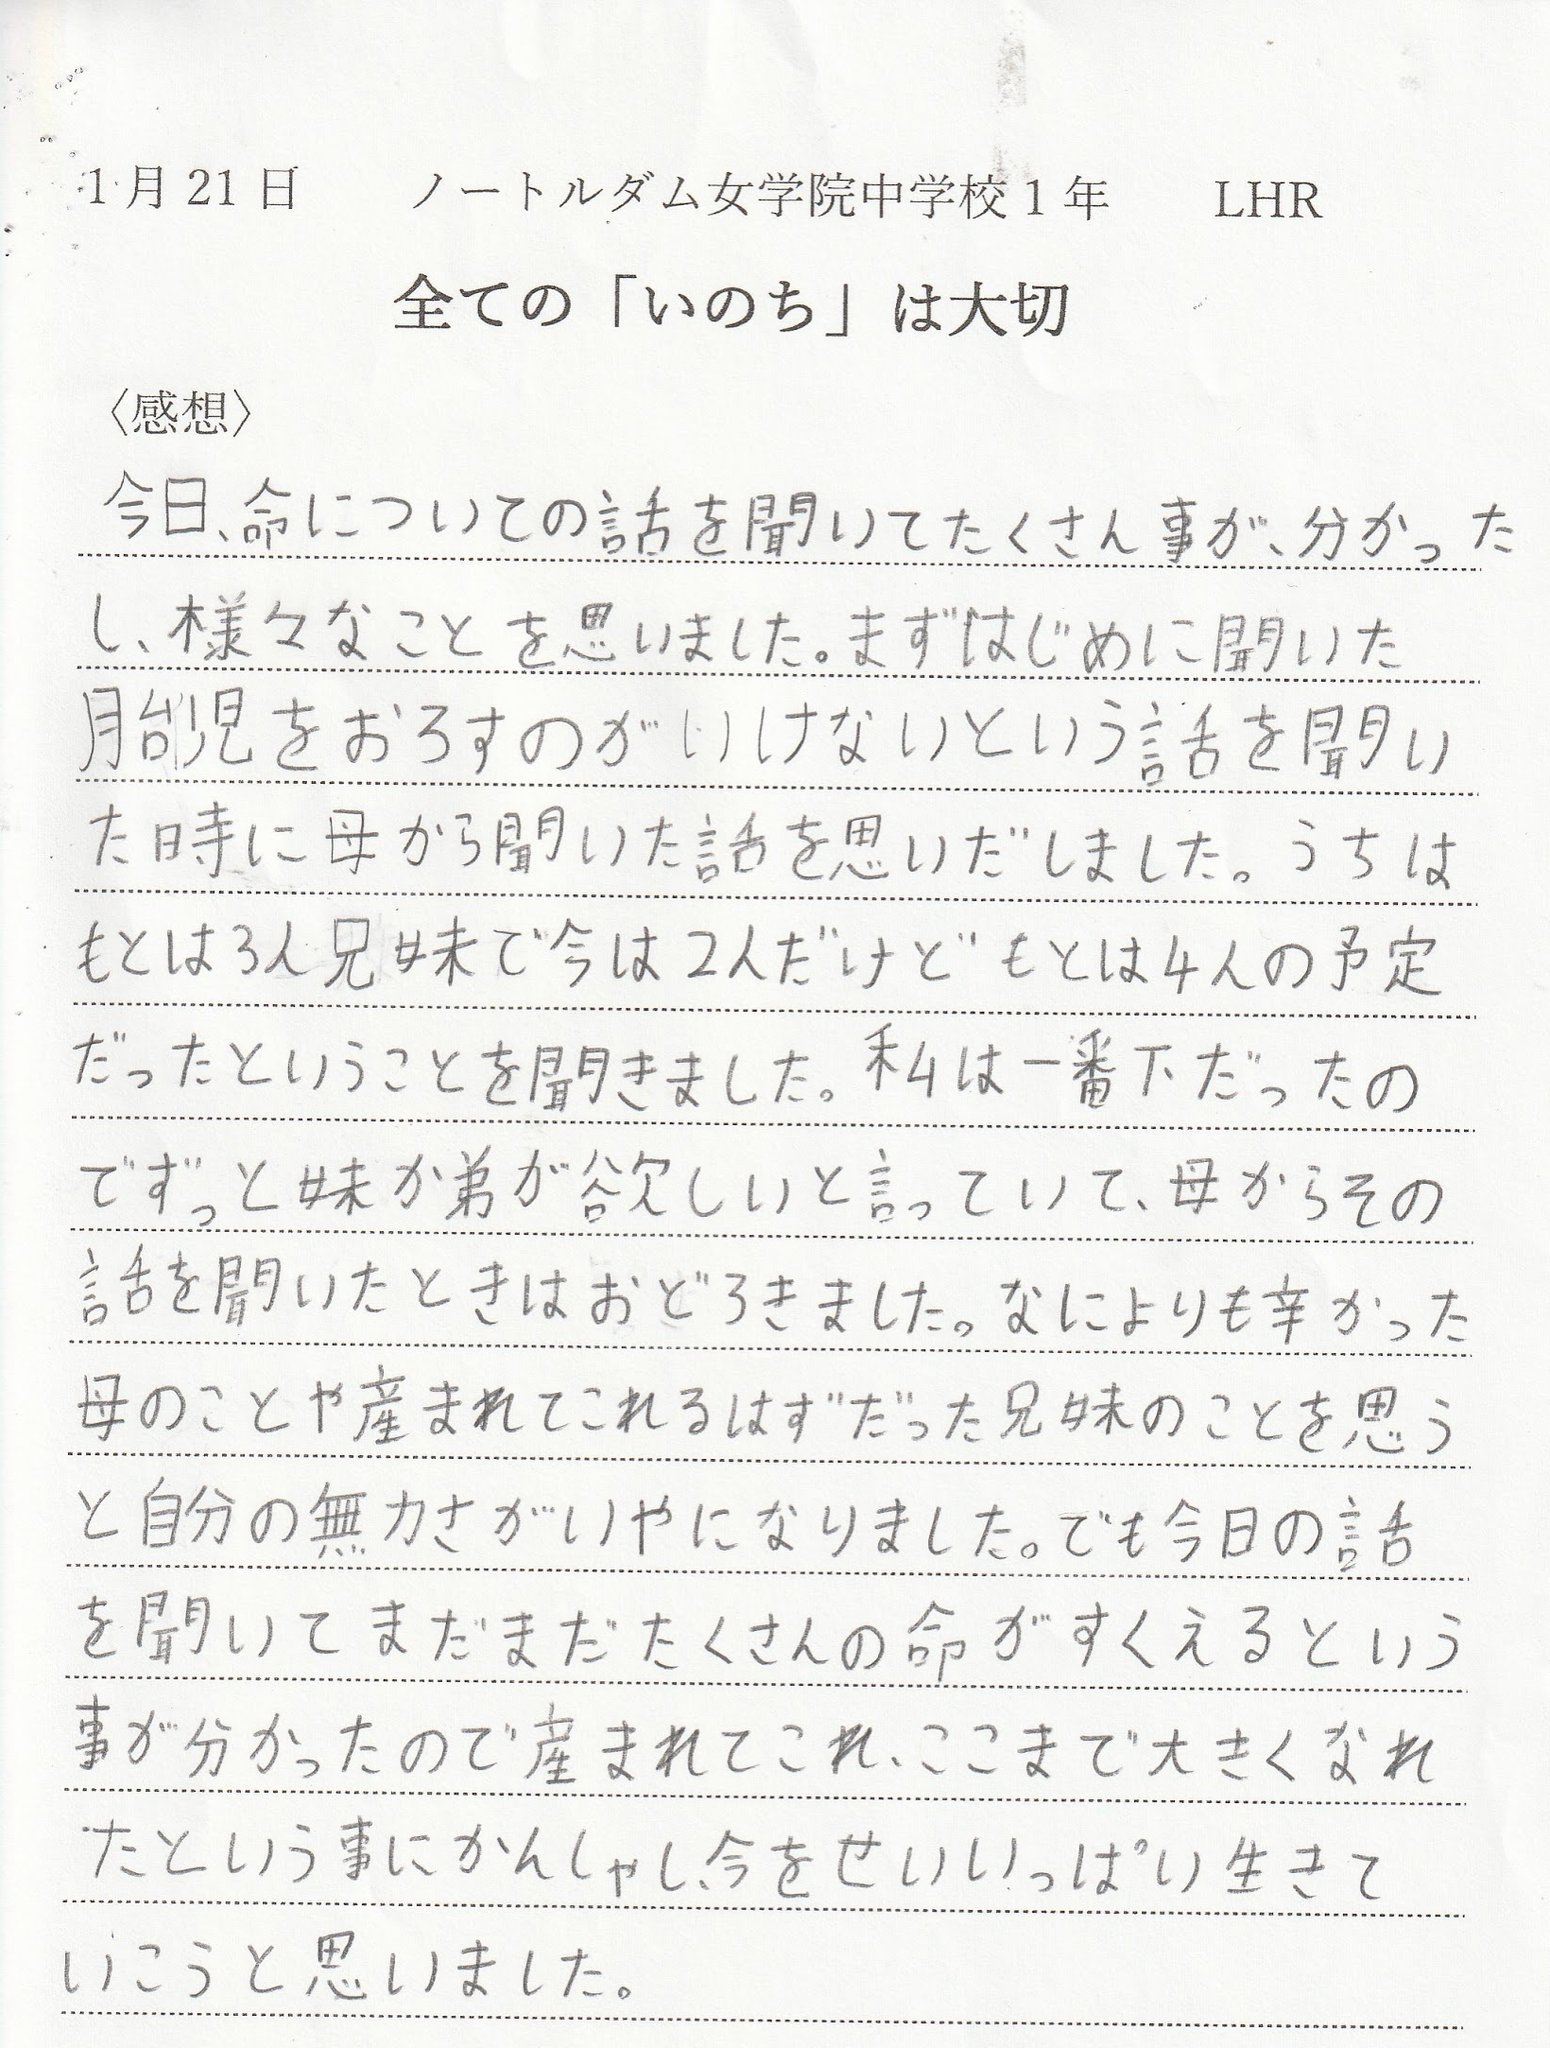 1月21日 ノートルダム女学院中学校1年 LHR
全ての「いのち」は大切
〈感想〉
今日、命についての話を聞いてたくさん事が、分かった
し、様々なことを思いました。まずはじめに聞いた
胎児をおろすのがいけないという話を聞い
た時に母から聞いた話を思いだしました。うちは
もとは3人兄妹で今は2人だけどもとは4人の予定
だったということを聞きました。私は一番下だったの
でずっと妹か弟が欲しいと言っていて、母からその
話を聞いたときはおどろきました。なによりも辛かった
母のことや産まれてこれるはずだった兄妹のことを思う
と自分の無力さがいやになりました。でも今日の話
を聞いてまだまだたくさんの命がすくえるという
事が分かったので産まれてこれ、ここまで大きくなれ
たという事にかんしゃし、今をせいいっぱい生きて
いこうと思いました。